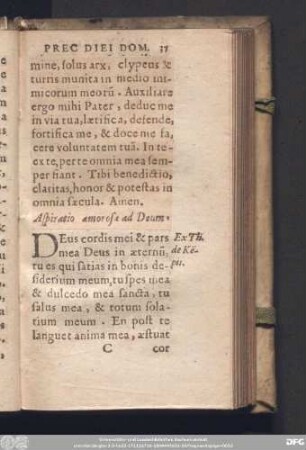 PREC DIEI DOM. 37
mine, solus arx, clypeus &
turris munita in medio ini-
micorum meorũ. Auxiliare
ergo mihi Pater, deduc me
in via tua, lætifica, defende,
fortifica me, & doce me fa,
cere voluntatem tuã. In te-
ex te, per te omnia mea sem-
per fiant. Tibi benedictio,
claritas, honor & potestas in
omnia sæcula. Amen.
Aspiratio amorosa ad Deum.
DEus cordis mei & pars
mea Deus in æternũ,
tu es qui satias in bonis de-
siderium meum, tu spes mea
& dulcedo mea sancta, tu
salus mea, & totum sola-
tium meum. En post te
languet anima mea, æstuat
C cor
Ex Th.
de Kẽ-
pis.